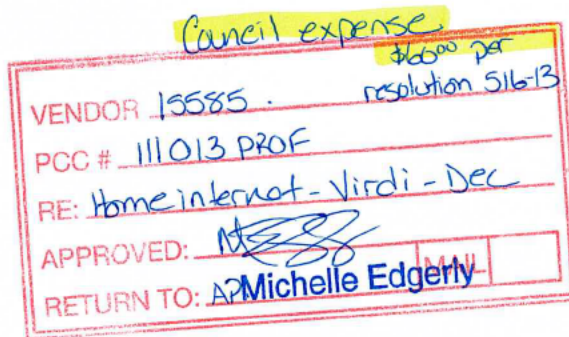 Council expense
$60⁰⁰ per
resolution 516-13
VENDOR 15585.
PCC # 111013 PROF
RE: Home internet - Virdi - Dec
APPROVED:
RETURN TO: AP Michelle Edgerly MAIL